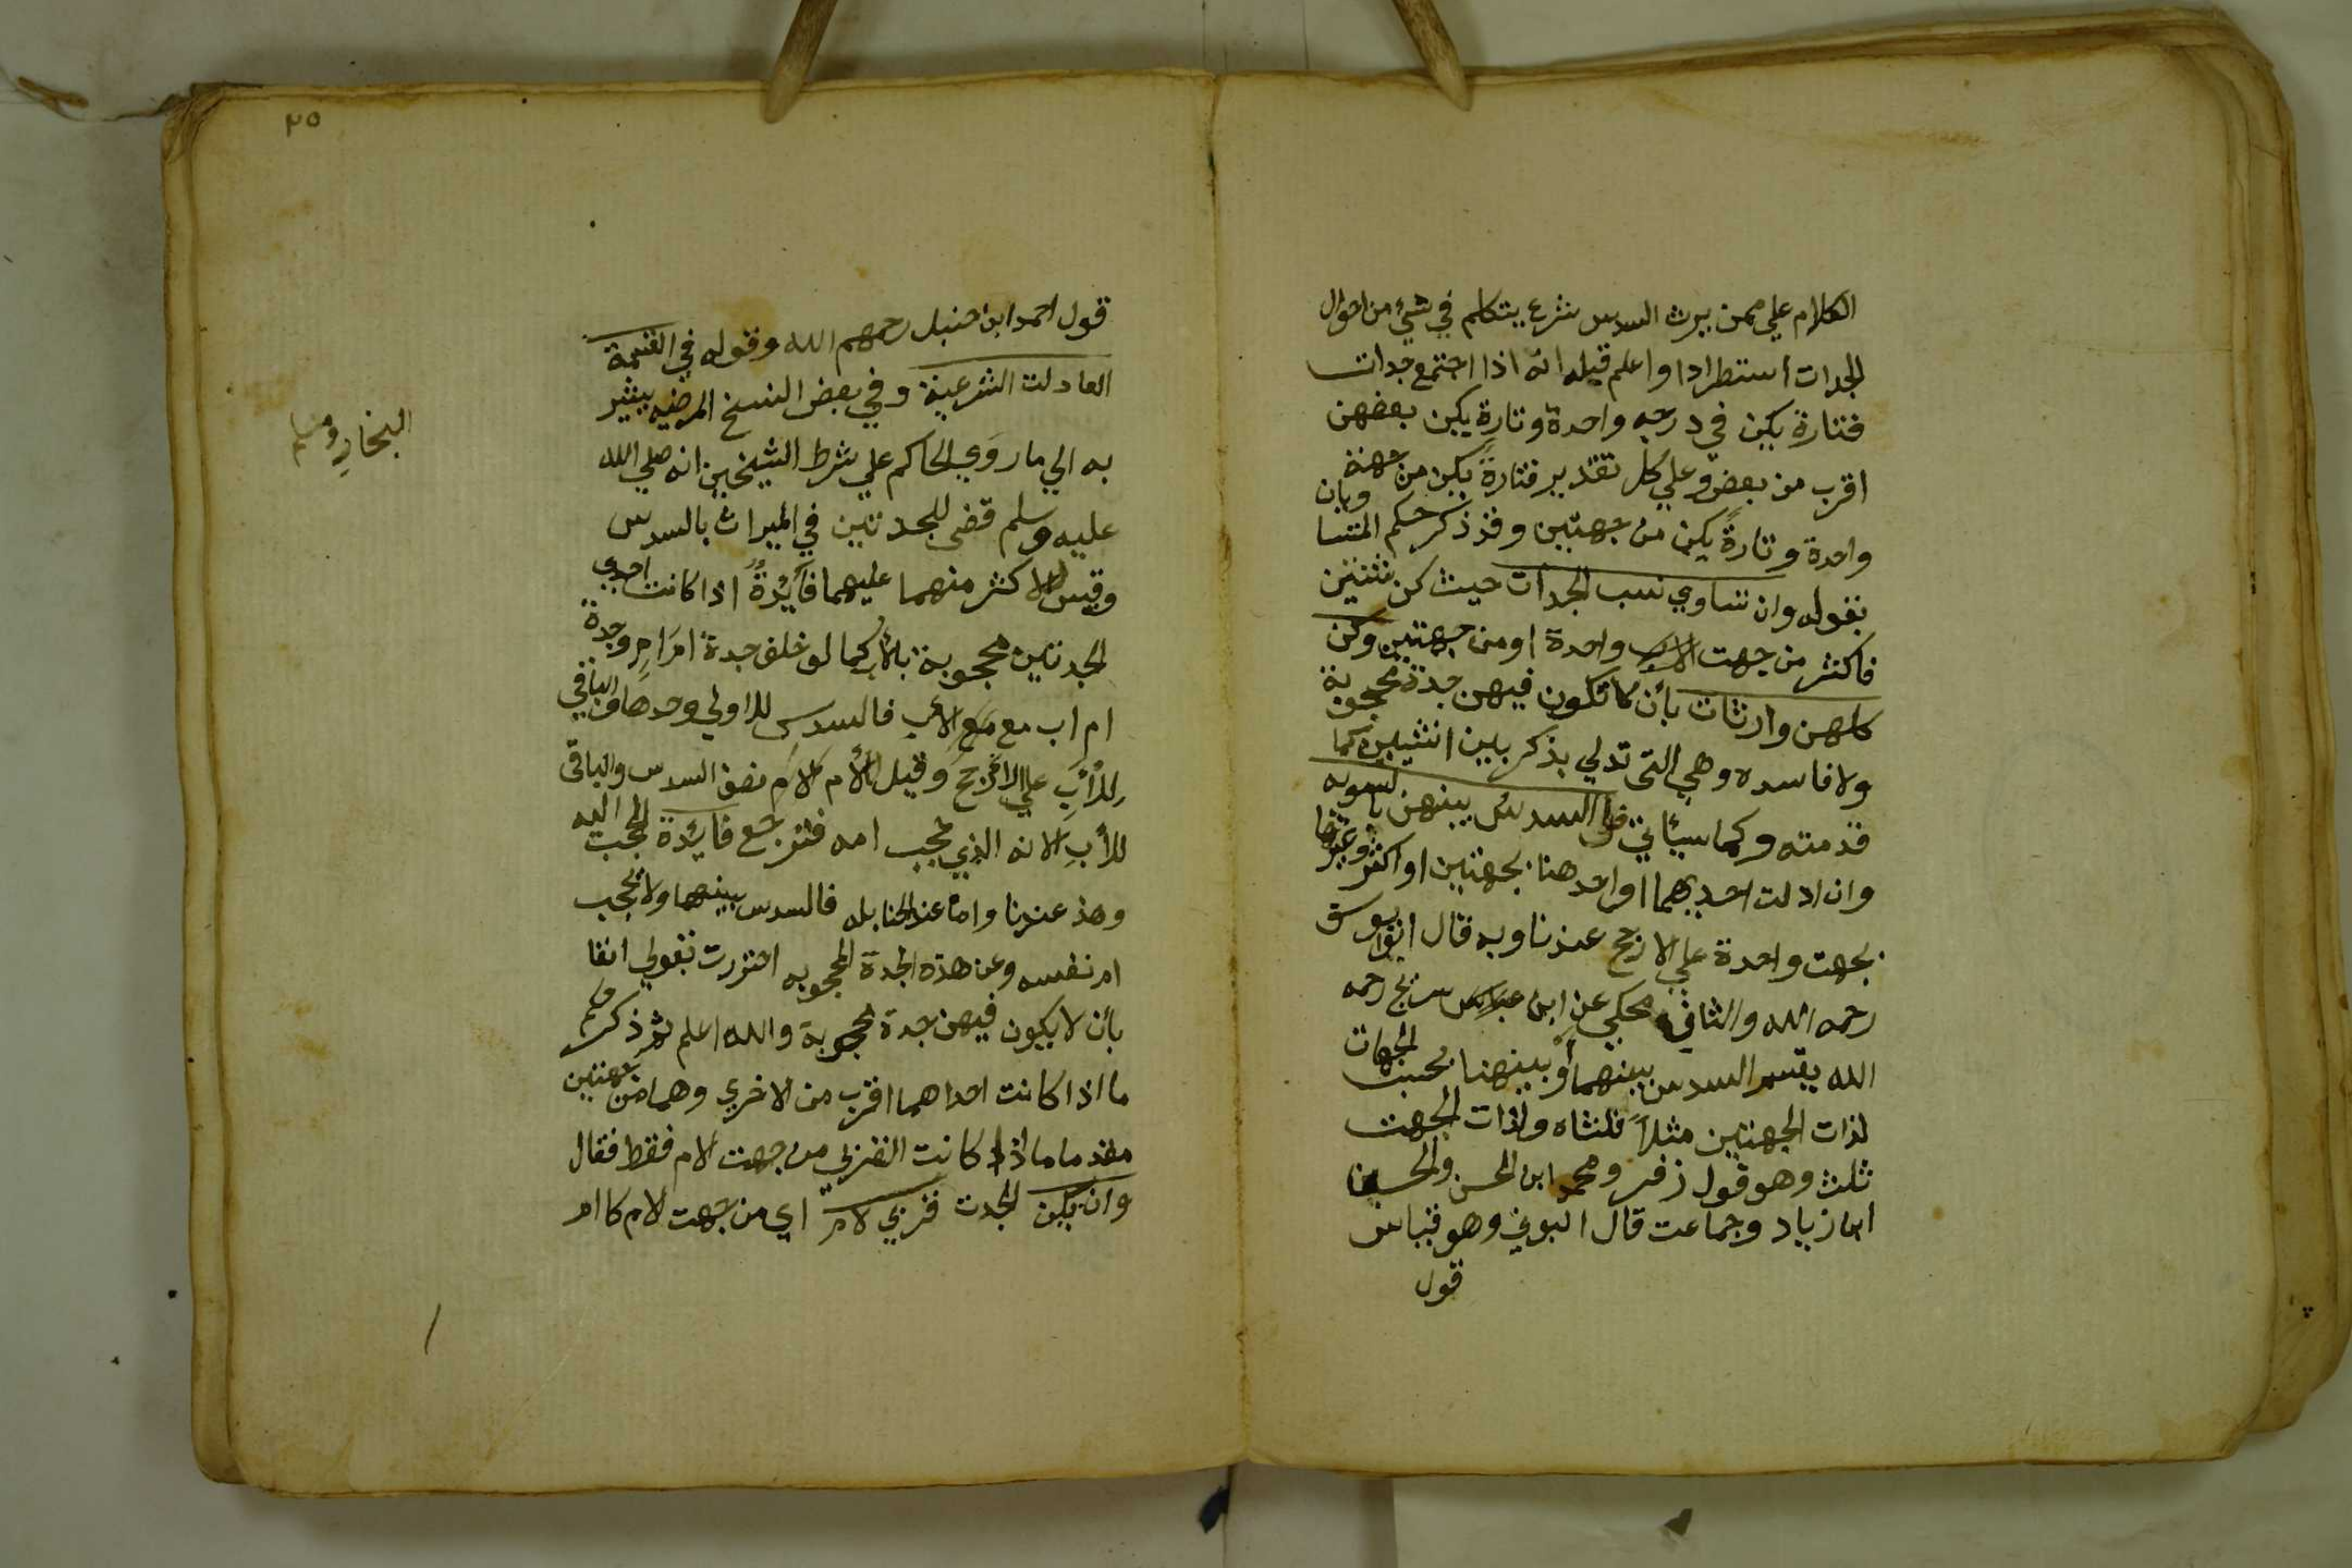 الكلام علي من يرث السدس شرع يتكلم في شيء من احوال
الجدات استطرادا واعلم قبله انه اذا اجتمع جدات
فتارة يكن في درجه واحدة وتارة يكن بعضهن
اقرب من بعض وعلي كل تقدير فتارةً يكن من جهة
واحدة وتارةً يكن من جهتين وقد ذكر حكم المتساويات
بقوله وان تساوي نسب الجدات حيث كن ثنتين
فاكثر من جهت الاب واحدة او من جهتين وكن
كلهن وارثات بأن لا تكون فيهن جدة محجوبة
ولا فاسده وهي التي تدلي بذكر بين انثيين كما
قدمته وكما سيأتي فالسدس بينهن بالسويه
وان ادلت احديهما او احدهنا بجهتين او اكثر وغيرها
بجهت واحدة علي الارجح عندنا وبه قال ابو يوسف
رحمه الله والثاني محكي عن ابن سريج رحمه
الله يقسم السدس بينهما او بينهنا بحسب الجهات
لذات الجهتين مثلاً ثلثاه ولذات الجهت
ثلث وهو قول زفر ومحمد ابن الحسن والحسن
ابن زياد وجماعت قال البوني وهو قياس
قول
٢٥
قول احمد ابن حنبل رحمهم الله وقوله في القسمة
العادلت الشرعية وفي بعض النسخ المرضيه يشير
به الي ما روَي الحاكم علي شرط الشيخين انه صلي الله
عليه وسلم قضي للجدتين في الميراث بالسدس
وقيس الاكثر منهما عليهما فأيُدةٌ اذا كانت احدي
الجدتين محجوبة بالأب كما لو خلف جدة ام ام وجدة
ام اب مع الاب فالسدس للاولي وحدها والباقي
للأب علي الارجح وقيل للأم الام نصف السدس والباقي
للأب لانه الذي يحجب امه فترجع فايدة الحجب اليه
وهذ عندنا واما عند الحنابله فالسدس بينهما ولا يحجب
ام نفسه وعن هذه الجدة المحجوبه احترزت بقولي انفا
بأن لا يكون فيهن جدة محجوبة والله اعلم ثم ذكر حكم
ما اذا كانت احداهما اقرب من الاخري وهما من جهتين
مقدما ما اذا كانت القربي من جهت الام فقط فقال
وان تكن الجدت قربي لام اي من جهت الام كاام
البخاري ومسلم